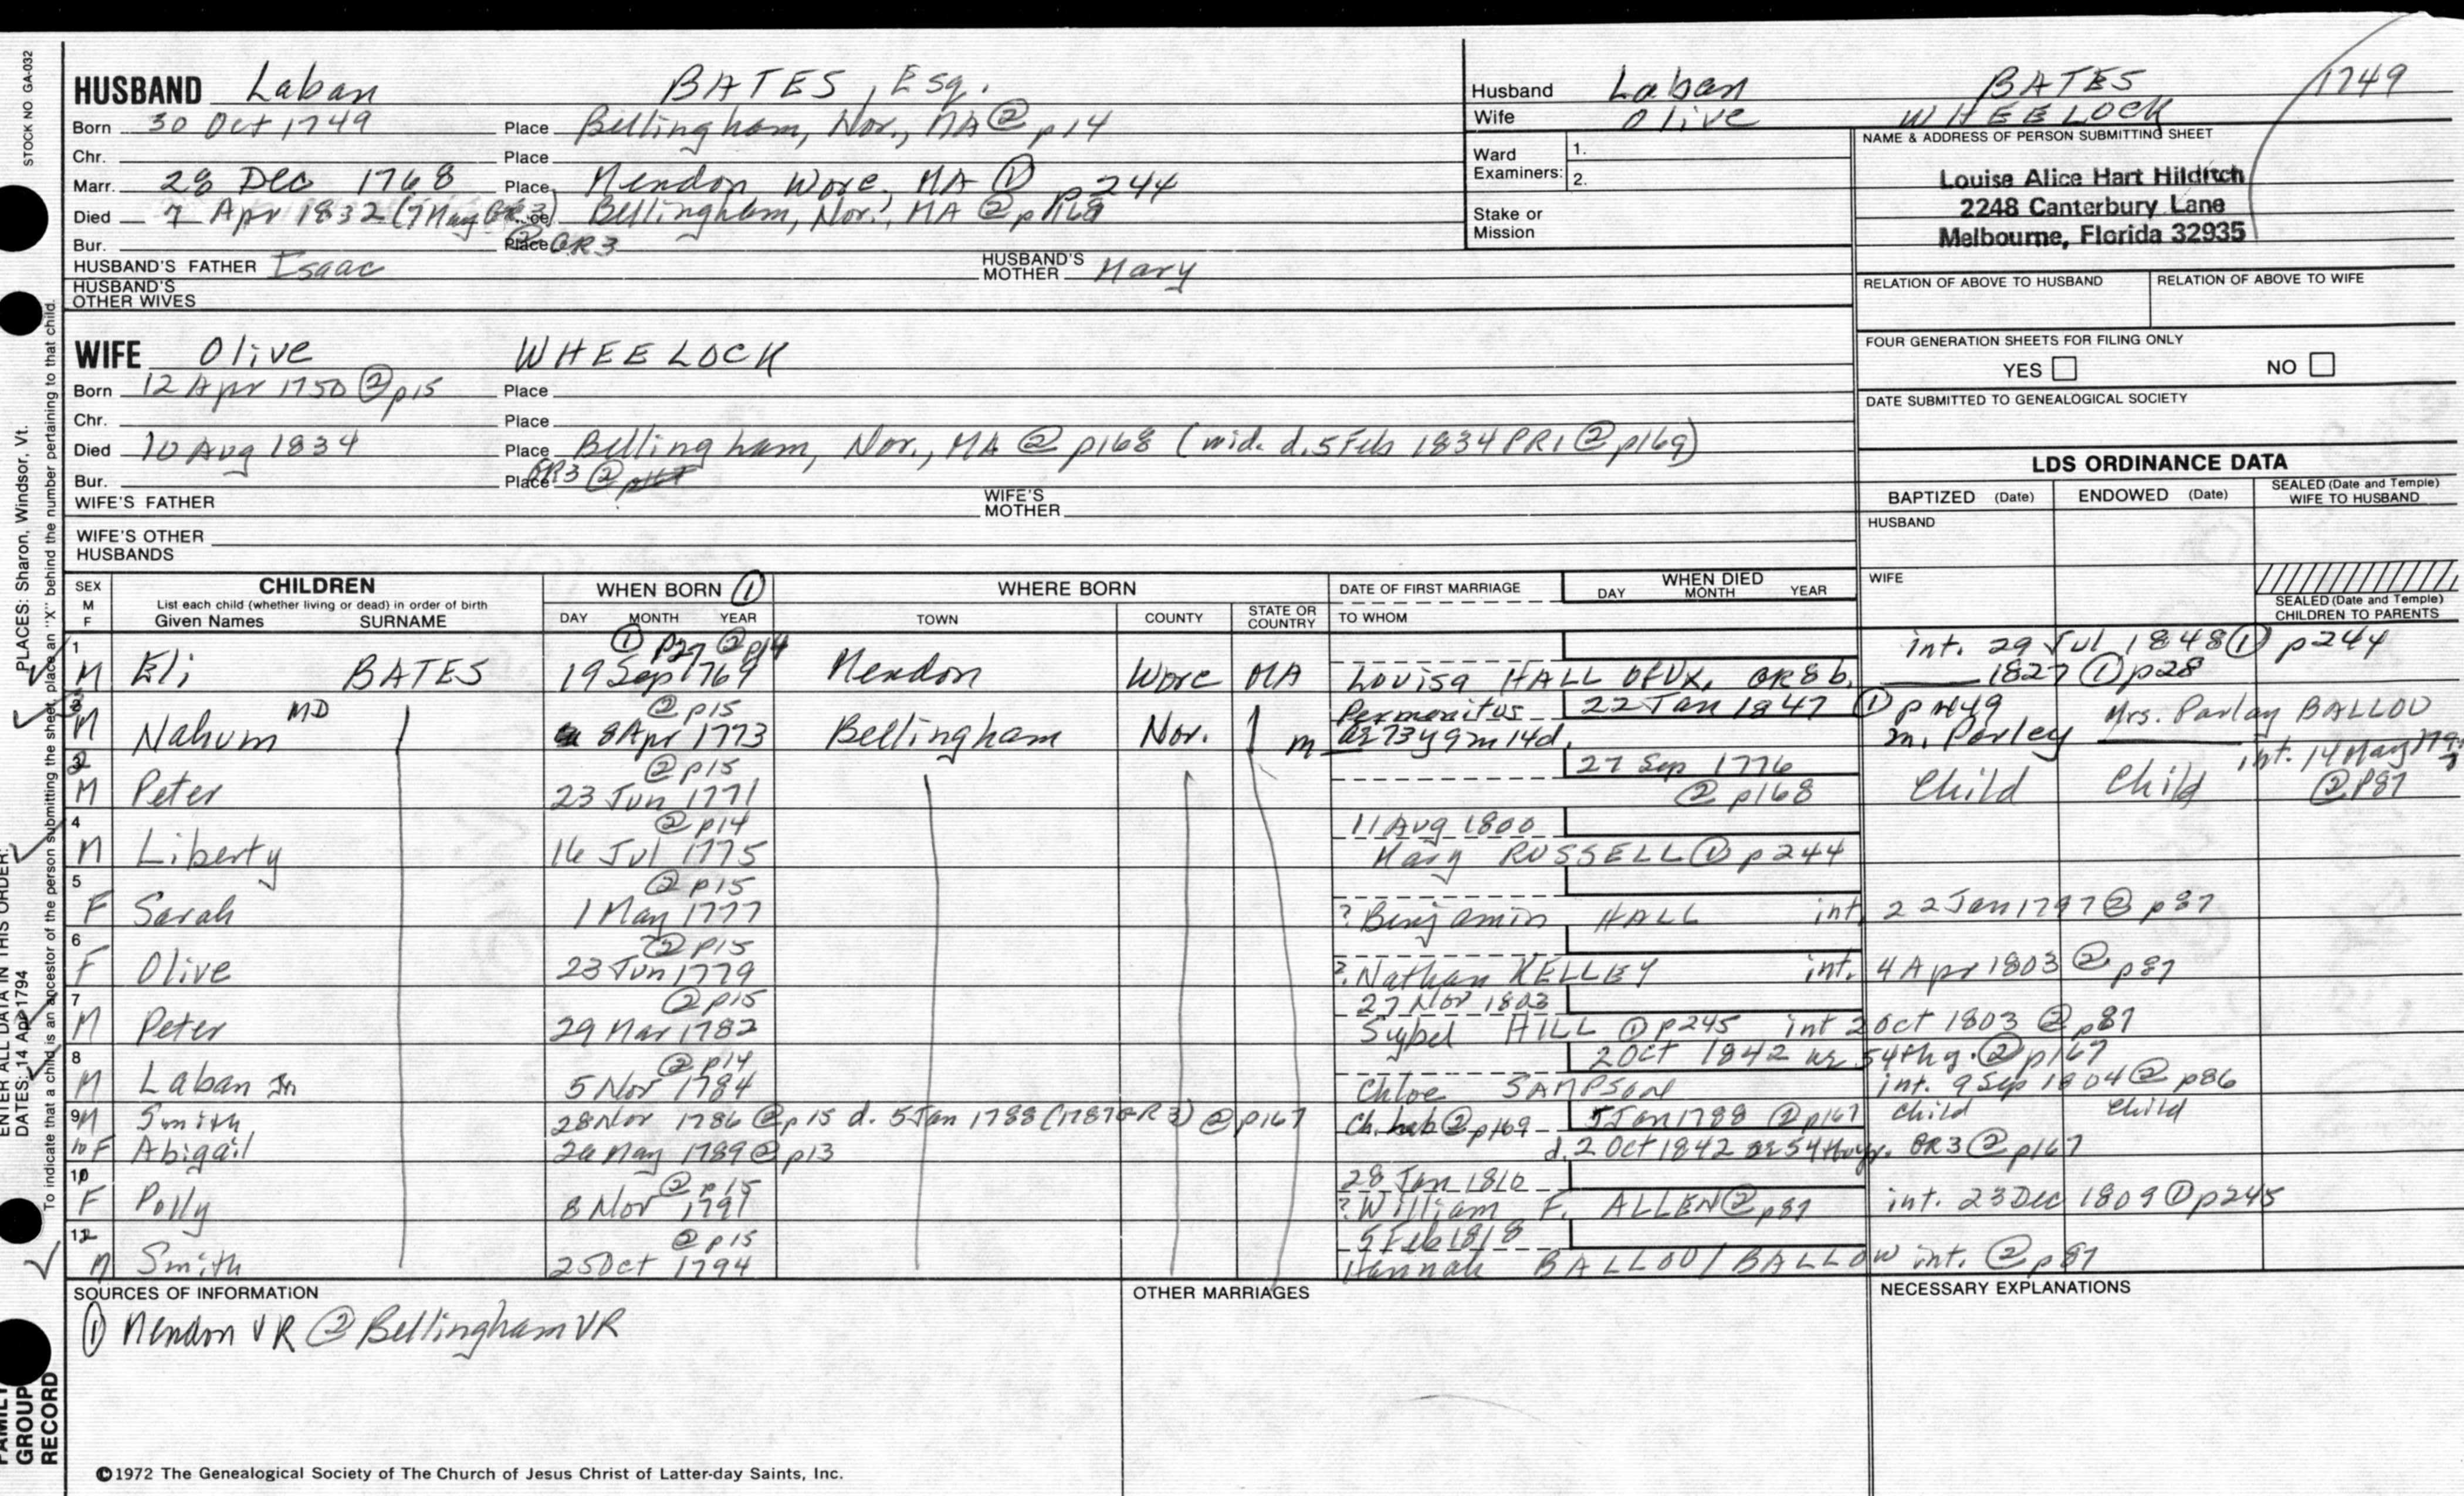 STOCK NO GA-032
HUSBAND Laban BATES, Esq.
Born 30 Oct 1749 Place Bellingham, Nor., MA ② p14
Chr. Place
Marr. 28 Dec 1768 Place Mendon, Worc, MA ① p244
Died 7 Apr 1832 (7 May GR3) Bellingham, Nor., MA ② p168
Bur. Place ② GR3
HUSBAND'S FATHER Isaac HUSBAND'S MOTHER Mary
HUSBAND'S OTHER WIVES
Husband Laban BATES 1749
Wife Olive WHEELOCK
Ward Examiners: 1.
2.
Stake or Mission
NAME & ADDRESS OF PERSON SUBMITTING SHEET
Louise Alice Hart Hilditch
2248 Canterbury Lane
Melbourne, Florida 32935
RELATION OF ABOVE TO HUSBAND RELATION OF ABOVE TO WIFE
FOUR GENERATION SHEETS FOR FILING ONLY
YES NO
DATE SUBMITTED TO GENEALOGICAL SOCIETY
WIFE Olive WHEELOCK
Born 12 Apr 1750 ② p15 Place
Chr. Place
Died 10 Aug 1834 Place Bellingham, Nor., MA ② p168 (wid. d. 5 Feb 1834 PR1 ② p169)
Bur. Place GR3 ②
WIFE'S FATHER WIFE'S MOTHER
WIFE'S OTHER HUSBANDS
LDS ORDINANCE DATA
BAPTIZED (Date) ENDOWED (Date) SEALED (Date and Temple) WIFE TO HUSBAND
HUSBAND
WIFE
SEALED (Date and Temple) CHILDREN TO PARENTS
SEX M F CHILDREN WHEN BORN ① WHERE BORN DATE OF FIRST MARRIAGE WHEN DIED
List each child (whether living or dead) in order of birth
Given Names SURNAME DAY MONTH YEAR TOWN COUNTY STATE OR COUNTRY TO WHOM DAY MONTH YEAR
1 ① p27 ② p14 int. 29 Jul 1848 ① p244
M Eli BATES 19 Sep 1769 Mendon Worc MA Louisa HALL of Ux, GR8 b. 1827 ① p28
MD ② p15 22 Jan 1847 ① Mrs. Parlay BALLOU
M Nahum 8 Apr 1773 Bellingham Nor. m ae 73y 9m 14d, m. Parley int. 14 May
② p15 27 Sep 1776
M Peter 23 Jun 1771 ② p168 Child Child ② P87
4 ② p14 11 Aug 1800
M Liberty 16 Jul 1775 Mary RUSSELL ① p244
5 ② p15
F Sarah 1 May 1777 ? Benjamin HALL int 22 Jan 1797 ② p87
6 ② p15
F Olive 23 Jun 1779 ? Nathan KELLEY int. 4 Apr 1803 ② p87
7 ② p15 27 Nov 1803
M Peter 29 Mar 1782 Sybel HILL ① p245 int 2 Oct 1803 ② p87
8 ② p14 2 Oct 1842 ae 54th y. ② p167
M Laban Jr 5 Nov 1784 Chloe SAMPSON int. 9 Sep 1804 ② p86
9 M Smith 28 Nov 1786 ② p15 d. 5 Jan 1788 (1787 GR3) ② p167 5 Jan 1788 ② p167 child child
10 F Abigail 20 May 1789 ② p13 d. 2 Oct 1842 ae 54th yr. GR3 ② p167
② p15 28 Jan 1810
F Polly 8 Nov 1791 ? William F. ALLEN ② p87 int. 23 Dec 1809 ① p245
12 ② p15 5 Feb 1818
M Smith 25 Oct 1794 Hannah BALLOU/BALLOW int. ② p87
SOURCES OF INFORMATION OTHER MARRIAGES NECESSARY EXPLANATIONS
① Mendon VR ② Bellingham VR
©1972 The Genealogical Society of The Church of Jesus Christ of Latter-day Saints, Inc.
ENTER ALL DATA IN THIS ORDER:
DATES: 14 Apr 1794
PLACES: Sharon, Windsor, Vt.
To indicate that a child is an ancestor of the person submitting the sheet, place an "X" behind the number pertaining to that child.
FAMILY GROUP RECORD